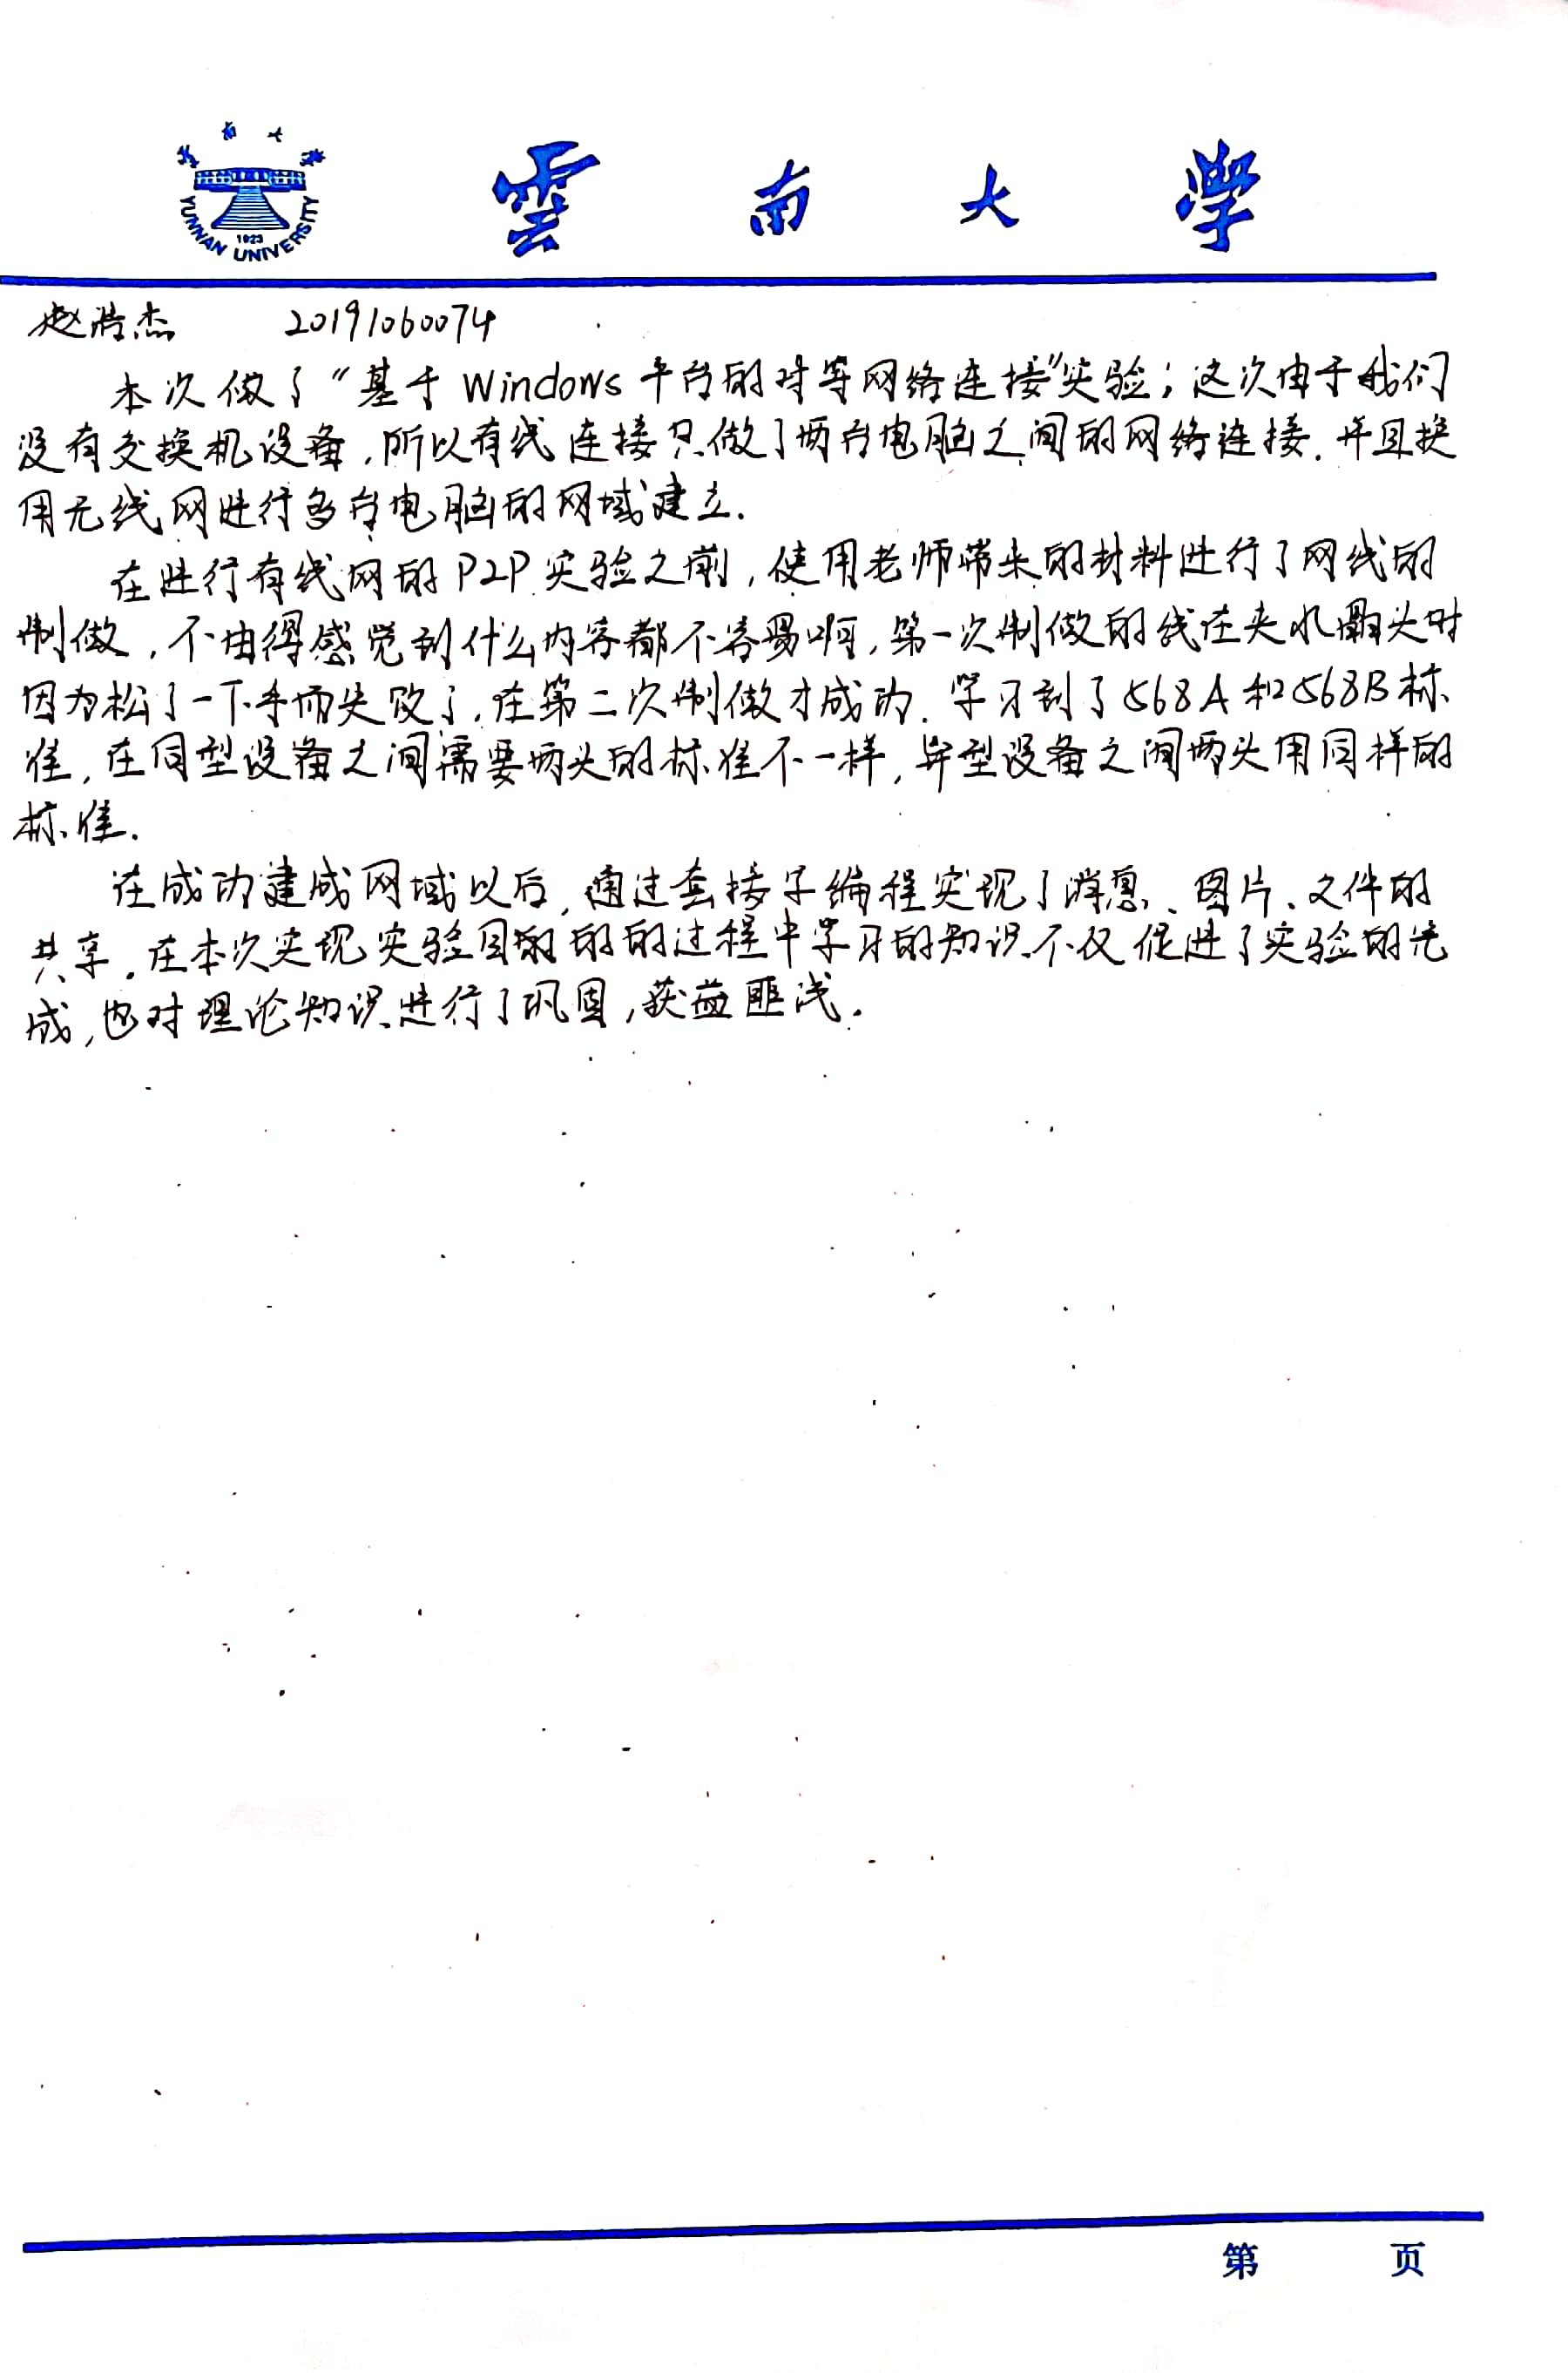 云南大学
YUNNAN UNIVERSITY
1923
雲南大學
赵浩杰 20191060074
本次做了“基于Windows平台的对等网络连接”实验；这次由于我们
没有交换机设备，所以有线连接只做了两台电脑之间的网络连接．并且换
用无线网进行多台电脑的网域建立．
在进行有线网的P2P实验之前，使用老师带来的材料进行了网线的
制做，不由得感觉到什么内容都不容易啊，第一次制做的线在夹水晶头时
因为松了一下手而失败了，在第二次制做才成功．学习到了568A和568B标
准，在同型设备之间需要两头的标准不一样，异型设备之间两头用同样的
标准．
在成功建成网域以后，通过套接字编程实现了消息、图片、文件的
共享．在本次实现实验目的的的过程中学习的知识不仅促进了实验的完
成，也对理论知识进行了巩固，获益匪浅．
第 页